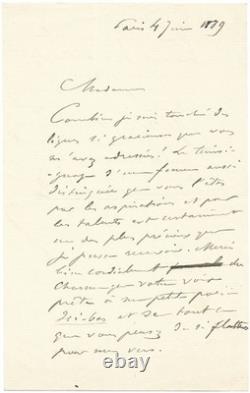 Paris 4 Juin 1889
Madame
Combien je suis touché des
lignes si gracieuses que vous
m'avez adressées! Le témoi-
gnage d'une femme aussi
distinguée que vous l'êtes
par les aspirations et par
les talents est certainement
un des plus précieux que
je puisse recevoir. Merci
bien cordialement du
charme que votre voix
prête à ma petite poésie
Ici-bas et de tout ce
que vous pensez de si flatteur
pour mes vers.
ebay